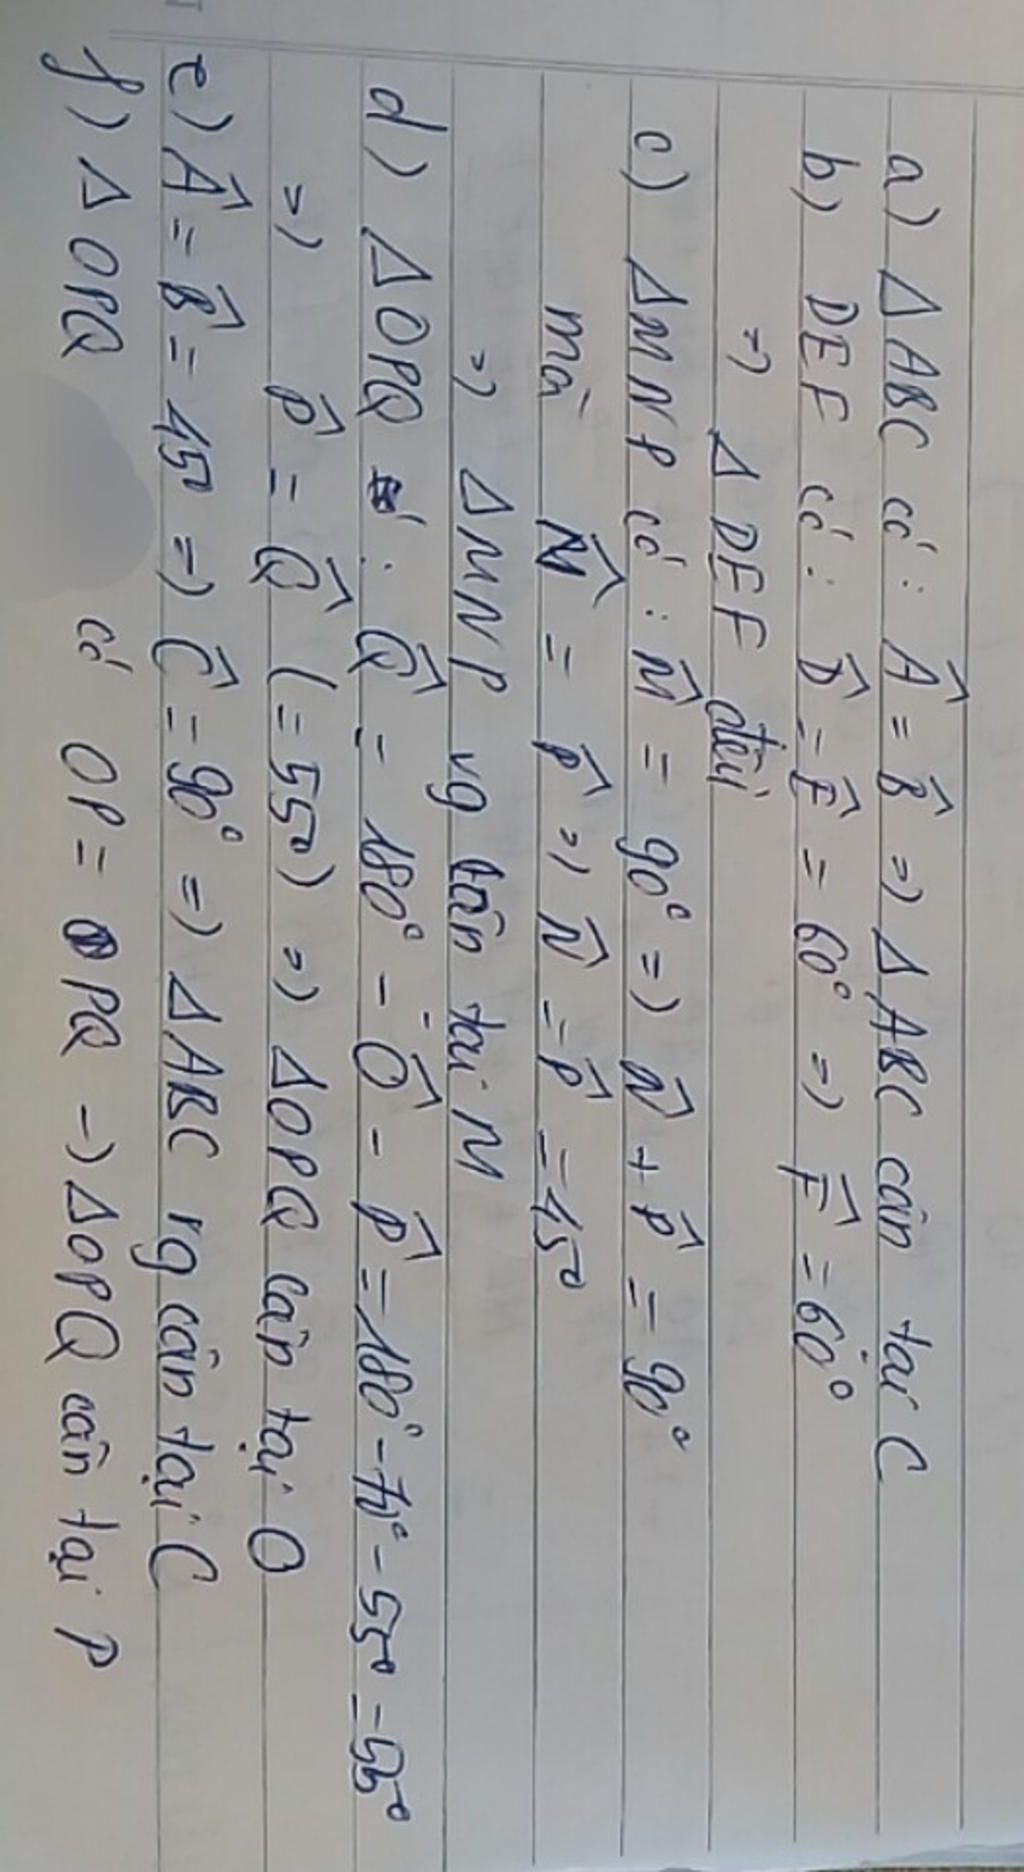 a) Δ ABC có: Â = B̂ => Δ ABC cân tại C
b) DEF có: D̂ = Ê = 60° => F̂ = 60°
=> Δ DEF đều
c) Δ MNP có: M̂ = 90° => N̂ + P̂ = 90°
mà N̂ = P̂ => N̂ = P̂ = 45°
=> Δ MNP vg cân tại M
d) Δ OPQ có: Q̂ = 180° - Ô - P̂ = 180° - 70° - 55° = 55°
=> P̂ = Q̂ (= 55°) => Δ OPQ cân tại O
e) Â = B̂ = 45° => Ĉ = 90° => Δ ABC vg cân tại C
f) Δ OPQ có OP = PQ -> Δ OPQ cân tại P